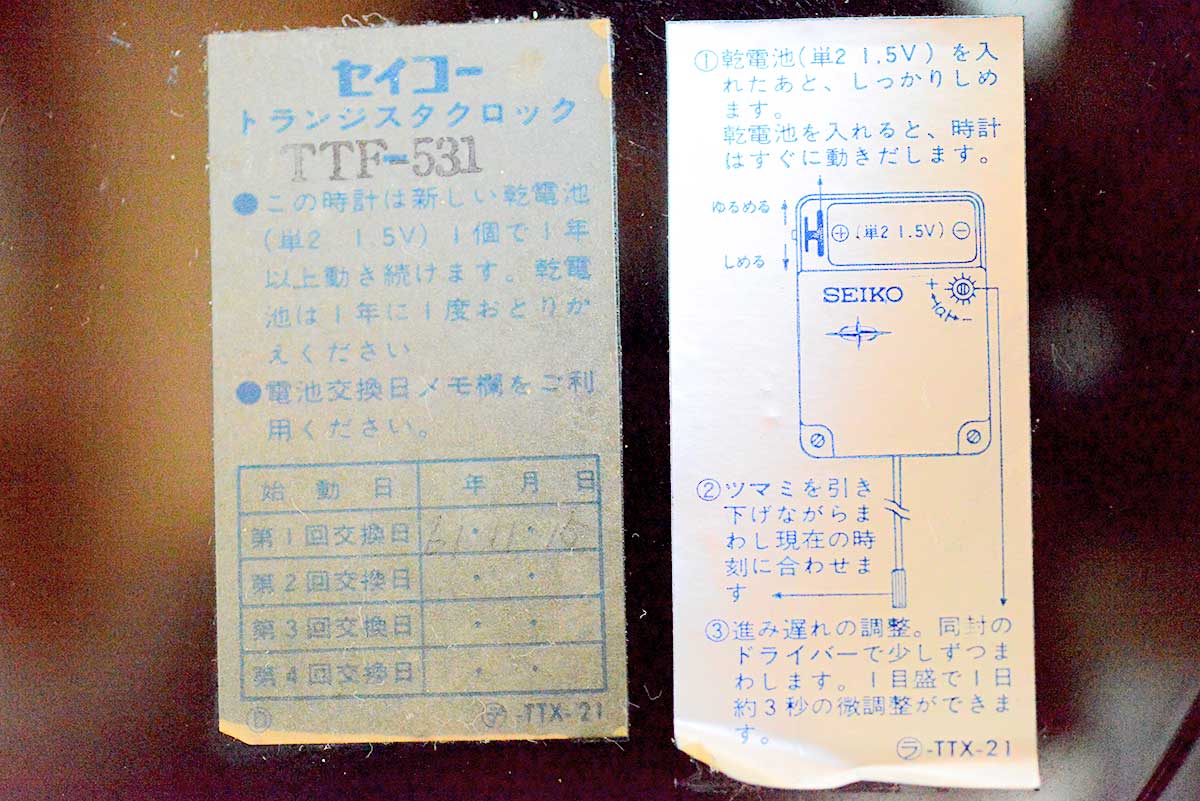 セイコー
トランジスタクロック
TTF-531
●この時計は新しい乾電池
(単2 1 5V) 1個で1年
以上動き続けます。乾電
池は1年に1度おとりか
えください
●電池交換日メモ欄をご利
用ください。
始動日 年 月 日
第1回交換日 61・11・
第2回交換日 ・ ・
第3回交換日 ・ ・
第4回交換日 ・ ・
Ⓓ ㋢-TTX-21
①乾電池(単2 1.5V) を入
れたあと、しっかりしめ
ます。
乾電池を入れると、時計
はすぐに動きだします。
ゆるめる
しめる
⊕ (単2 1.5V) ⊖
SEIKO
+
-
②ツマミを引き
下げながらま
わし現在の時
刻に合わせま
す
③進み遅れの調整。同封の
ドライバーで少しずつま
わします。1目盛で1日
約3秒の微調整ができま
す。
㋶-TTX-21